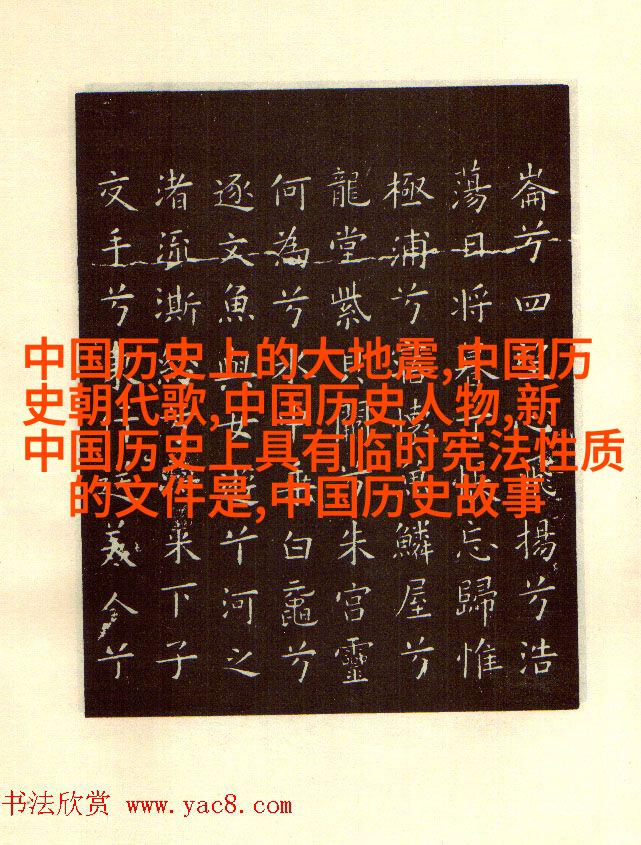 崙兮四揚兮浩
蕩日將忘歸惟
極浦兮懷鱗屋兮
龍堂紫貝闕朱宮靈
何為兮水中白黿兮
逐文魚與女遊兮河之
渚流澌來下子
交手兮
中国历史上的大地震,中国历
史朝代歌,中国历史人物,新
中国历史上具有临时宪法性质
的文件是,中国历史故事
书法欣赏 www.yac8.com